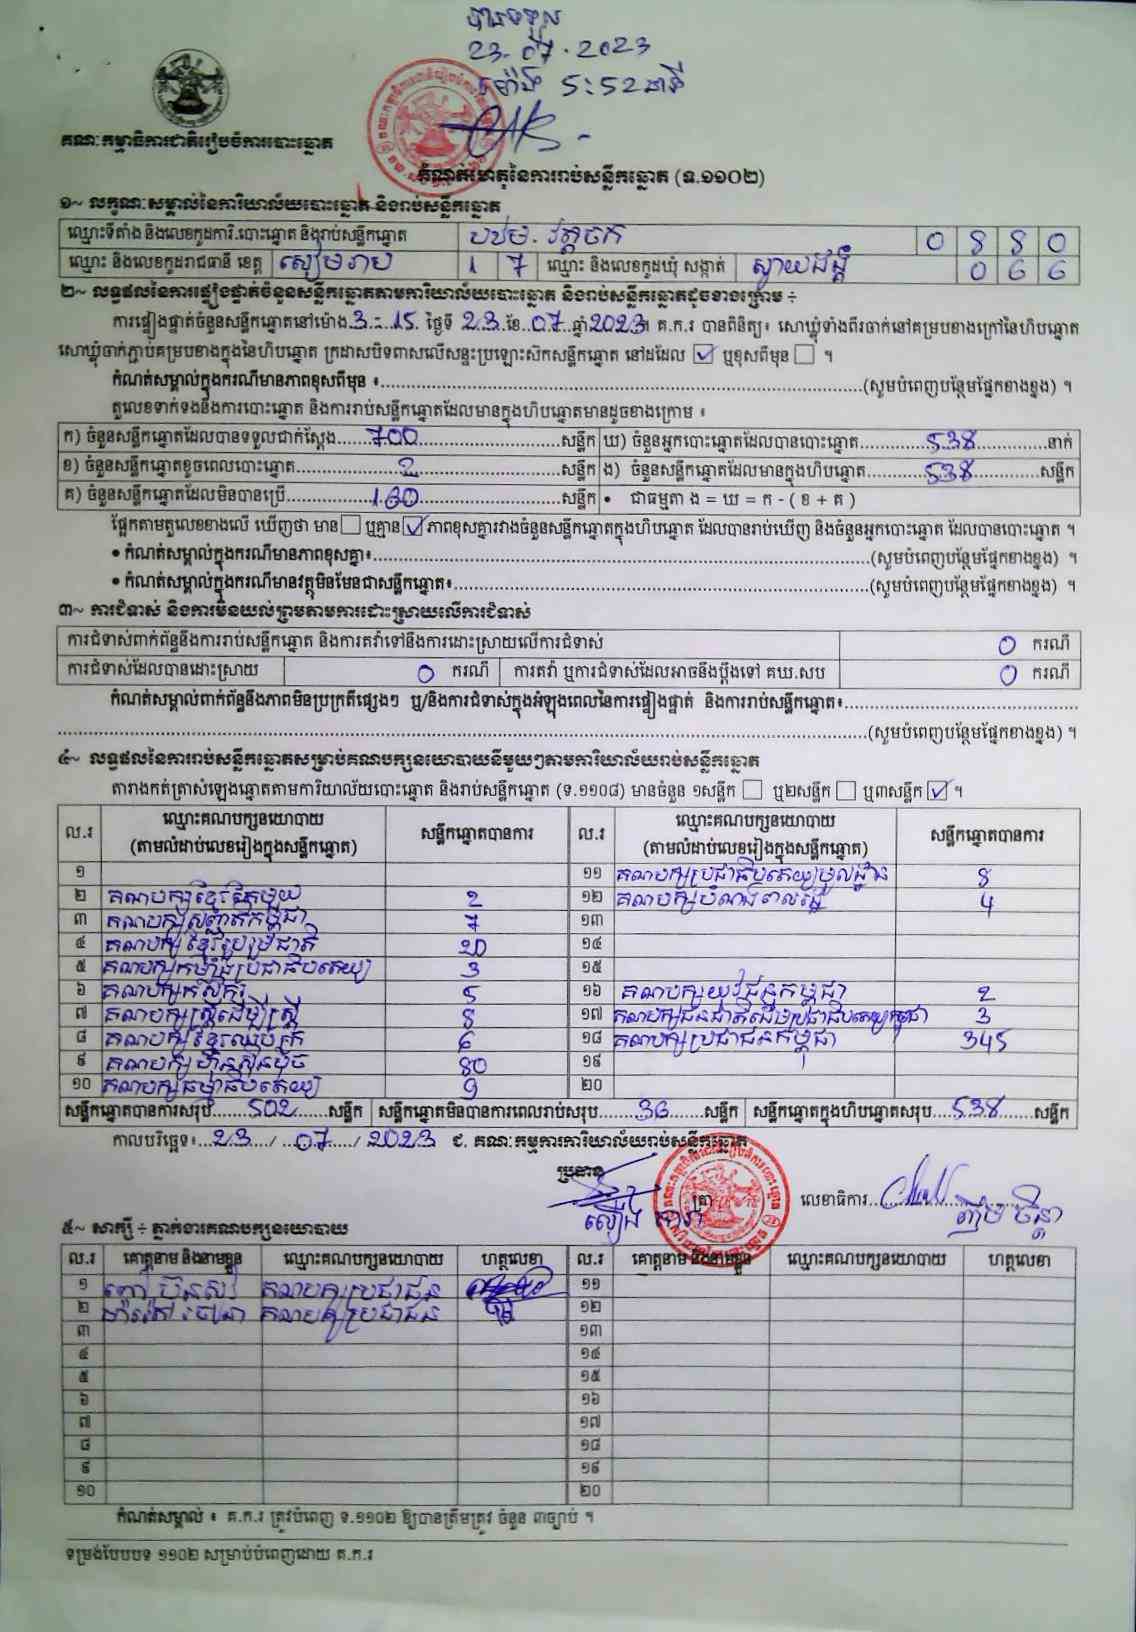 បានទទួល
23.07.2023
ម៉ោង 5:52 នាទី
គណៈកម្មាធិការជាតិរៀបចំការបោះឆ្នោត
កំណត់ហេតុនៃការរាប់សន្លឹកឆ្នោត (ទ.១១០២)
១~ លក្ខណៈសម្គាល់នៃការិយាល័យបោះឆ្នោត និងរាប់សន្លឹកឆ្នោត
ឈ្មោះទីតាំង និងលេខកូដការិ.បោះឆ្នោត និងរាប់សន្លឹកឆ្នោត 0 8 8 0
ឈ្មោះ និងលេខកូដរាជធានី ខេត្ត សៀមរាប 1 7 ឈ្មោះ និងលេខកូដឃុំ សង្កាត់ ស្វាយដង្គំ 0 6 6
២~ លទ្ធផលនៃការផ្ទៀងផ្ទាត់ចំនួនសន្លឹកឆ្នោតតាមការិយាល័យបោះឆ្នោត និងរាប់សន្លឹកឆ្នោតដូចខាងក្រោម ÷
ការផ្ទៀងផ្ទាត់ចំនួនសន្លឹកឆ្នោតនៅម៉ោង 3:15 ថ្ងៃទី 23 ខែ 07 ឆ្នាំ 2023។ គ.ក.រ បានពិនិត្យ៖ សោឃ្លុំទាំងពីរចាក់នៅគម្របខាងក្រៅនៃហិបឆ្នោត
សោឃ្លុំចាក់ភ្ជាប់គម្របខាងក្នុងនៃហិបឆ្នោត ក្រដាសបិទពាសលើសន្ទះប្រឡោះស៊កសន្លឹកឆ្នោត នៅដដែល ☑ ឬខុសពីមុន ☐ ។
កំណត់សម្គាល់ក្នុងករណីមានភាពខុសពីមុន ៖ (សូមបំពេញបន្ថែមផ្នែកខាងខ្នង) ។
តួលេខទាក់ទងនឹងការបោះឆ្នោត និងការរាប់សន្លឹកឆ្នោតដែលមានក្នុងហិបឆ្នោតមានដូចខាងក្រោម ៖
ក) ចំនួនសន្លឹកឆ្នោតដែលបានទទួលជាក់ស្តែង 700 សន្លឹក ឃ) ចំនួនអ្នកបោះឆ្នោតដែលបានបោះឆ្នោត 538 នាក់
ខ) ចំនួនសន្លឹកឆ្នោតខូចពេលបោះឆ្នោត 2 សន្លឹក ង) ចំនួនសន្លឹកឆ្នោតដែលមានក្នុងហិបឆ្នោត 538 សន្លឹក
គ) ចំនួនសន្លឹកឆ្នោតដែលមិនបានប្រើ 160 សន្លឹក • ជាធម្មតា ង = ឃ = ក - ( ខ + គ )
ផ្អែកតាមតួលេខខាងលើ ឃើញថា មាន ☐ ឬគ្មាន ☑ ភាពខុសគ្នារវាងចំនួនសន្លឹកឆ្នោតក្នុងហិបឆ្នោត ដែលបានរាប់ឃើញ និងចំនួនអ្នកបោះឆ្នោត ដែលបានបោះឆ្នោត ។
• កំណត់សម្គាល់ក្នុងករណីមានភាពខុសគ្នា៖ (សូមបំពេញបន្ថែមផ្នែកខាងខ្នង) ។
• កំណត់សម្គាល់ក្នុងករណីមានវត្ថុមិនមែនជាសន្លឹកឆ្នោត៖ (សូមបំពេញបន្ថែមផ្នែកខាងខ្នង) ។
៣~ ការជំទាស់ និងការមិនយល់ព្រមតាមការដោះស្រាយលើការជំទាស់
ការជំទាស់ពាក់ព័ន្ធនឹងការរាប់សន្លឹកឆ្នោត និងការតវ៉ាទៅនឹងការដោះស្រាយលើការជំទាស់ 0 ករណី
ការជំទាស់ដែលបានដោះស្រាយ 0 ករណី ការតវ៉ា ឬការជំទាស់ដែលអាចនឹងប្តឹងទៅ គឃ.សប 0 ករណី
កំណត់សម្គាល់ពាក់ព័ន្ធនឹងភាពមិនប្រក្រតីផ្សេងៗ ឬ/និងការជំទាស់ក្នុងអំឡុងពេលនៃការផ្ទៀងផ្ទាត់ និងការរាប់សន្លឹកឆ្នោត៖
(សូមបំពេញបន្ថែមផ្នែកខាងខ្នង) ។
៤~ លទ្ធផលនៃការរាប់សន្លឹកឆ្នោតសម្រាប់គណបក្សនយោបាយនីមួយៗតាមការិយាល័យរាប់សន្លឹកឆ្នោត
តារាងកត់ត្រាសំឡេងឆ្នោតតាមការិយាល័យបោះឆ្នោត និងរាប់សន្លឹកឆ្នោត (ទ.១១០៨) មានចំនួន ១សន្លឹក ☐ ឬ២សន្លឹក ☐ ឬ៣សន្លឹក ☑ ។
ល.រ ឈ្មោះគណបក្សនយោបាយ (តាមលំដាប់លេខរៀងក្នុងសន្លឹកឆ្នោត) សន្លឹកឆ្នោតបានការ ល.រ ឈ្មោះគណបក្សនយោបាយ (តាមលំដាប់លេខរៀងក្នុងសន្លឹកឆ្នោត) សន្លឹកឆ្នោតបានការ
១ ១១ គណបក្សប្រជាធិបតេយ្យមូលដ្ឋាន 8
២ គណបក្សខ្មែរតែមួយ 2 ១២ គណបក្ស 4
៣ គណបក្សសញ្ជាតិកម្ពុជា 7 ១៣
៤ គណបក្សខ្មែររួបរួមជាតិ 20 ១៤
៥ គណបក្សកម្លាំងប្រជាធិបតេយ្យ 3 ១៥
៦ គណបក្សកសិករ 5 ១៦ គណបក្សយុវជនកម្ពុជា 2
៧ គណបក្សស្ត្រីដើម្បីស្ត្រី 8 ១៧ គណបក្សជនជាតិដើមប្រជាធិបតេយ្យកម្ពុជា 3
៨ គណបក្សខ្មែរឈប់ក្រ 6 ១៨ គណបក្សប្រជាជនកម្ពុជា 345
៩ គណបក្សហ៊្វុនស៊ិនប៉ិច 80 ១៩
១០ គណបក្សធម្មាធិបតេយ្យ 9 ២០
សន្លឹកឆ្នោតបានការសរុប 502 សន្លឹក សន្លឹកឆ្នោតមិនបានការពេលរាប់សរុប 36 សន្លឹក សន្លឹកឆ្នោតក្នុងហិបឆ្នោតសរុប 538 សន្លឹក
កាលបរិច្ឆេទ៖ 23 / 07 / 2023 ជ. គណៈកម្មការការិយាល័យរាប់សន្លឹកឆ្នោត
ប្រធាន ត្រា លេខាធិការ
៥~ សាក្សី ÷ ភ្នាក់ងារគណបក្សនយោបាយ
ល.រ គោត្តនាម និងនាមខ្លួន ឈ្មោះគណបក្សនយោបាយ ហត្ថលេខា ល.រ គោត្តនាម និងនាមខ្លួន ឈ្មោះគណបក្សនយោបាយ ហត្ថលេខា
១ គណបក្សប្រជាជន ១១
២ គណបក្សប្រជាជន ១២
៣ ១៣
៤ ១៤
៥ ១៥
៦ ១៦
៧ ១៧
៨ ១៨
៩ ១៩
១០ ២០
កំណត់សម្គាល់ ៖ គ.ក.រ ត្រូវបំពេញ ទ.១១០២ ឱ្យបានត្រឹមត្រូវ ចំនួន ៣ច្បាប់ ។
ទម្រង់បែបបទ ១១០២ សម្រាប់បំពេញដោយ គ.ក.រ